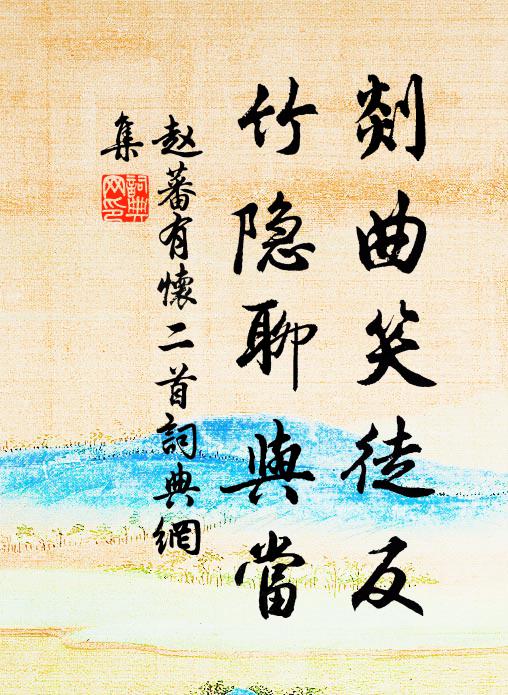 剡曲笑徒反
竹隐聊與當
赵蕃有懷二首詞典網
集
詞典
网印